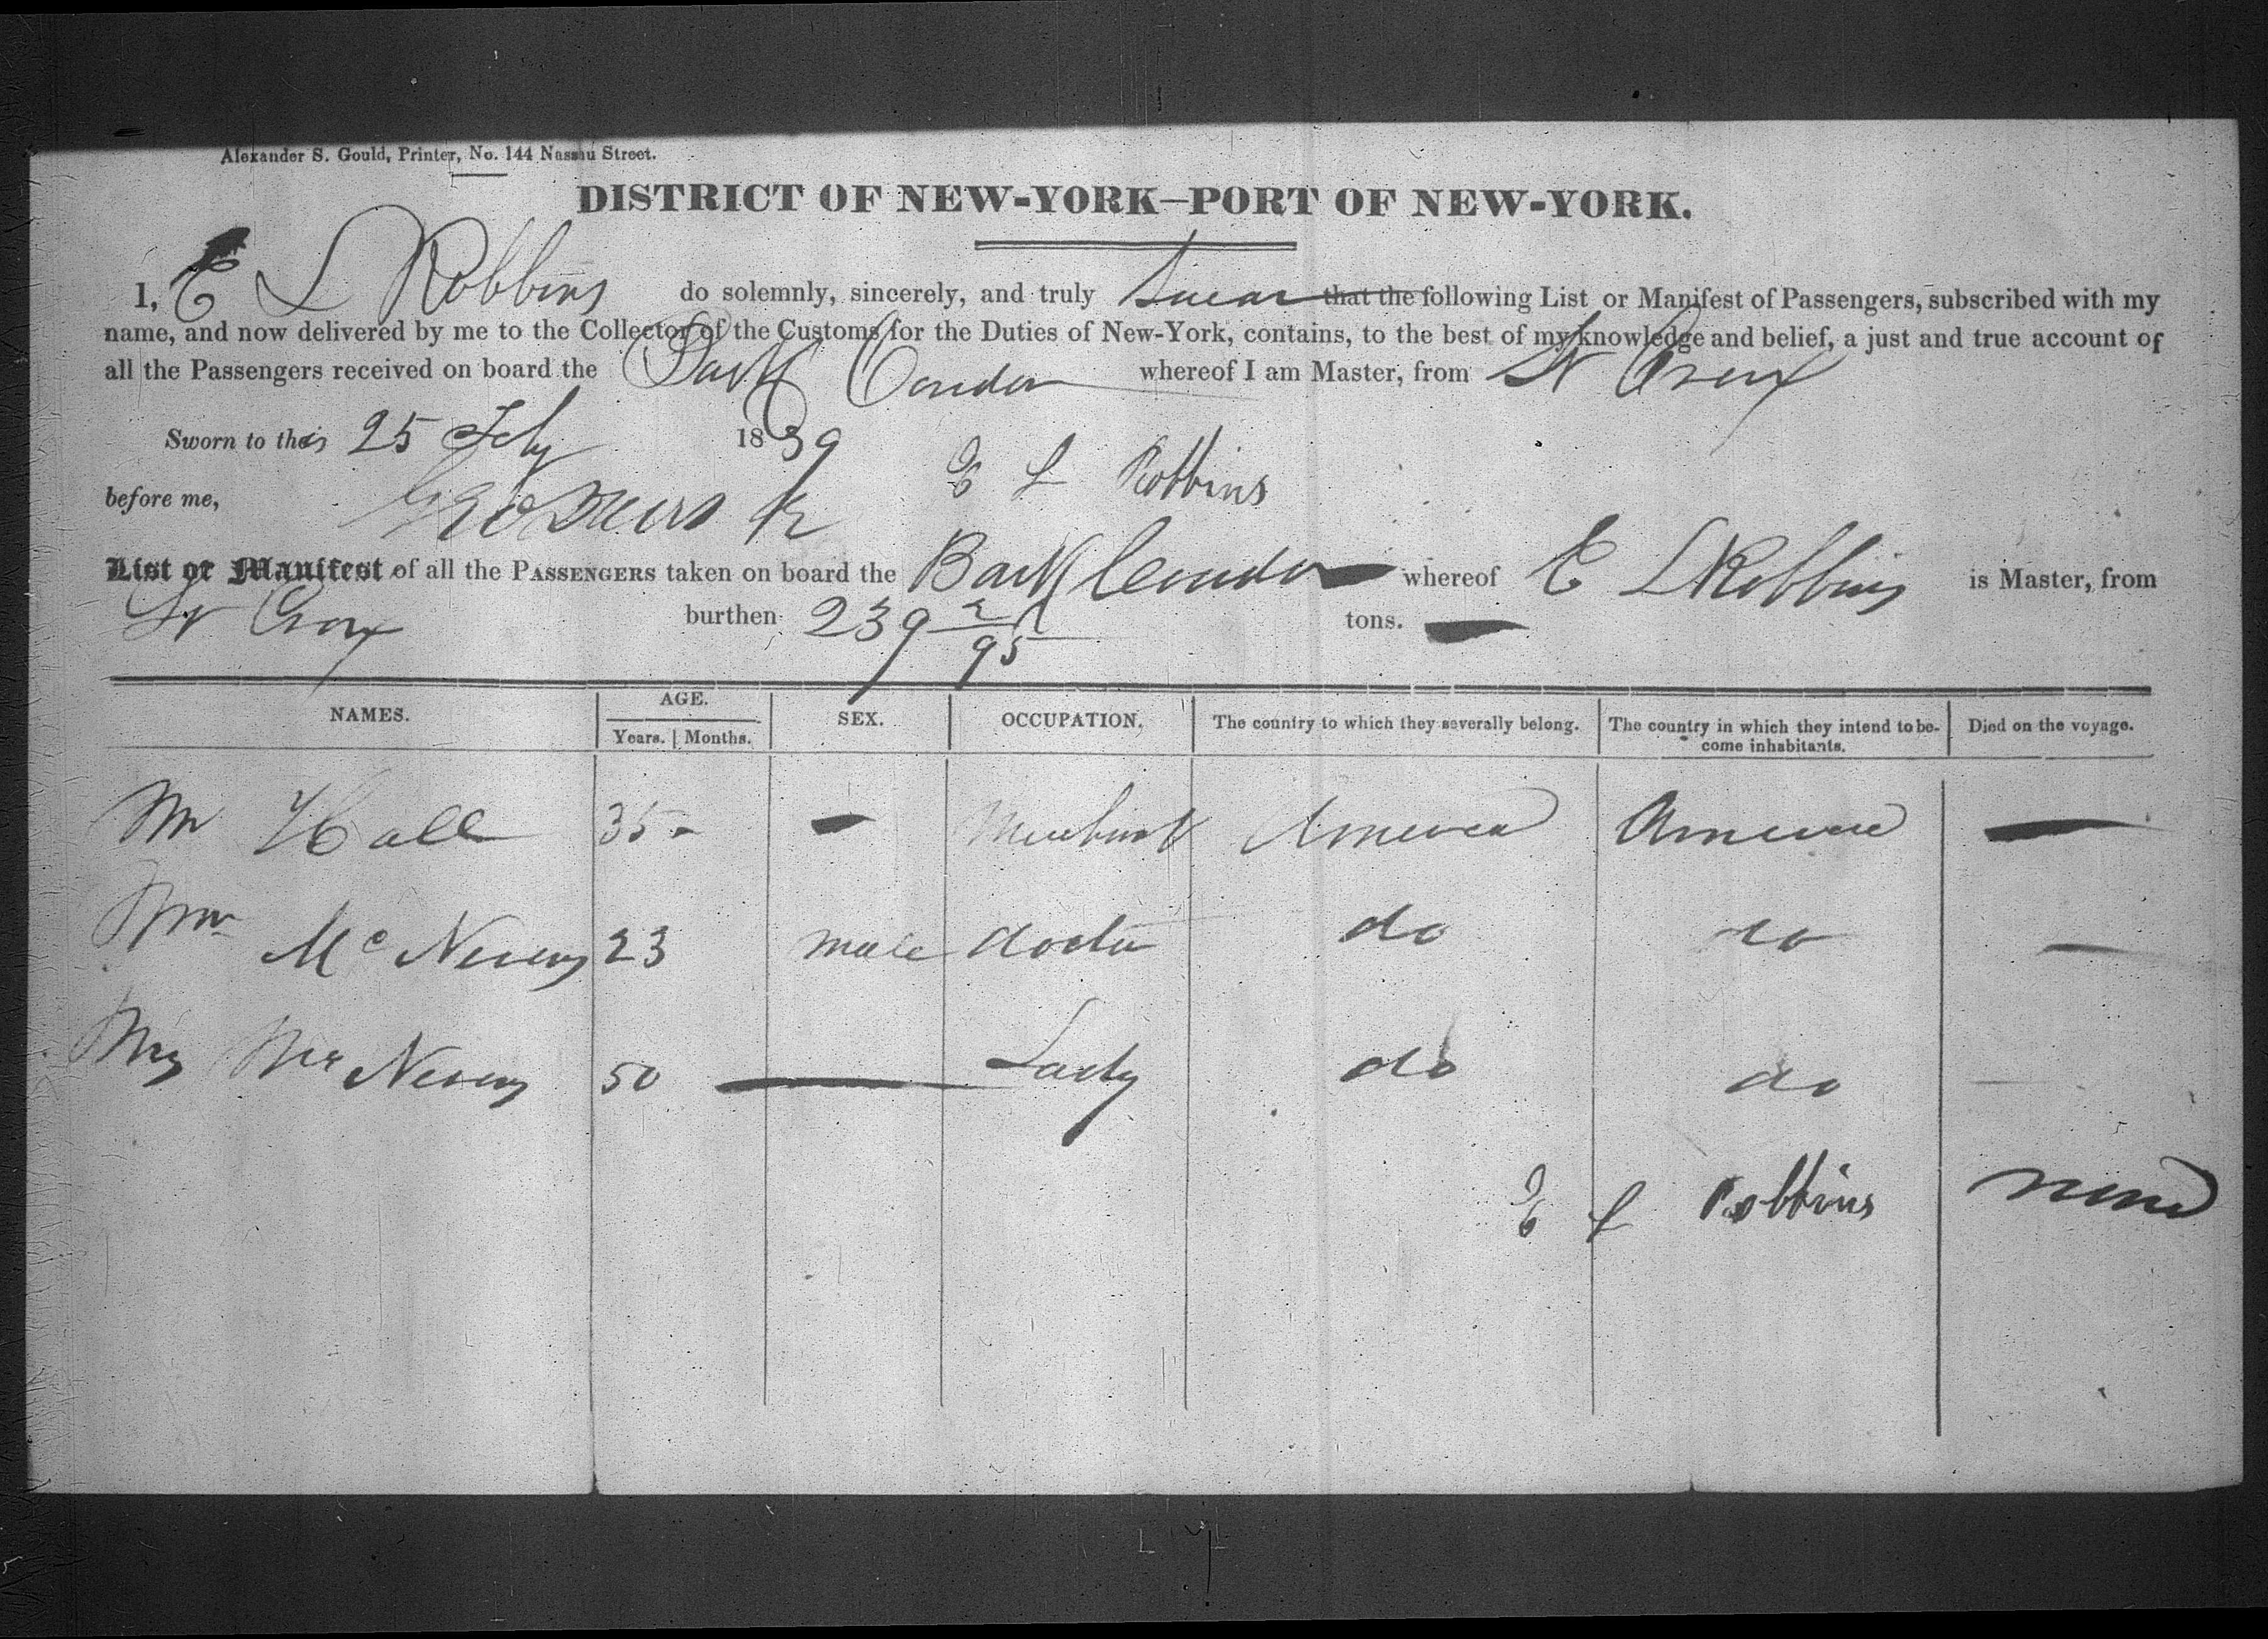 Alexander S. Gould, Printer, No. 144 Nassau Street.
DISTRICT OF NEW-YORK—PORT OF NEW-YORK.
I, E L Robbins do solemnly, sincerely, and truly Swear that the following List or Manifest of Passengers, subscribed with my
name, and now delivered by me to the Collector of the Customs for the Duties of New-York, contains, to the best of my knowledge and belief, a just and true account of
all the Passengers received on board the Bark Condor whereof I am Master, from St Croix
Sworn to this 25 July 1839
E L Robbins
before me,
List or Manifest of all the PASSENGERS taken on board the Bark Condor whereof E L Robbins is Master, from
St Croix burthen 239 2/95 tons.
NAMES. AGE. SEX. OCCUPATION. The country to which they severally belong. The country in which they intend to be- Died on the voyage.
Years. Months. come inhabitants.
Mr Hall 35 - — Merchant America America —
Mr McNeveny 23 male doctor do do —
Mrs McNeveny 50 — Lady do do
E L Robbins none